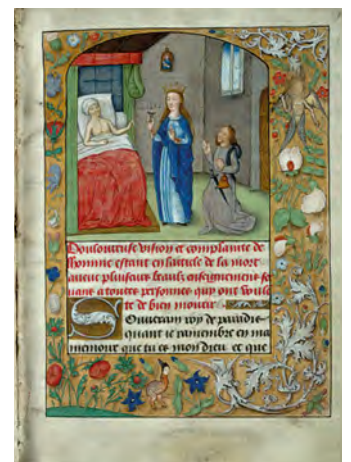 Douloureuse vision et complainte de
lhomme estant en larticle de la mort
pluiseurs beaulx
a toutes personnes quy ont
te de bien mourir
Souuerain roy de paradis
quant ie ramembre en ma
memoire que tu es mon dieu et que